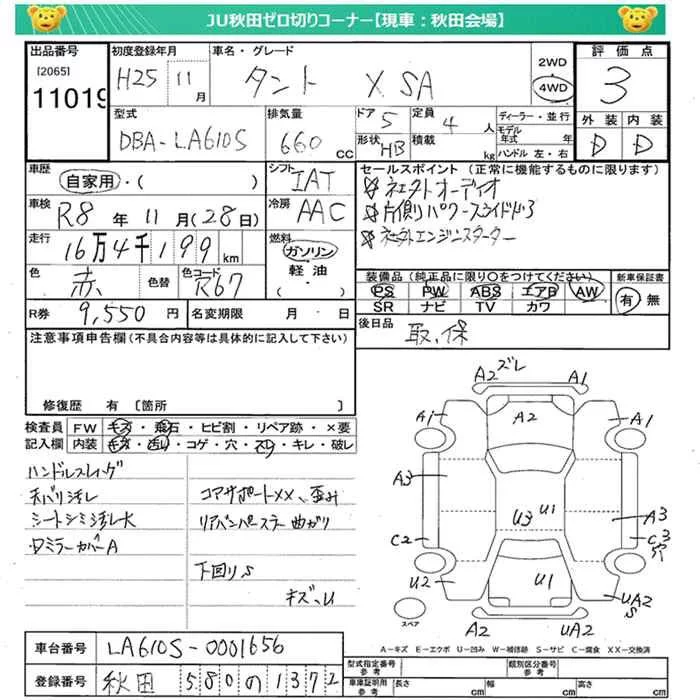 JU秋田ゼロ切りコーナー【現車：秋田会場】
出品番号
[2065]
11019
初度登録年月
H25 11月
車名・グレード
タント X SA
2WD
4WD
評価点
3
外装 内装
D D
型式
DBA-LA610S
排気量
660 cc
ドア 5
定員 4 人
形状 HB
積載 kg
ディーラー・並行
モデル年式 年
ハンドル 左・右
車歴
自家用・( )
シフト
IAT
車検
R8年11月(28日)
冷房
AAC
走行
16万4千199km
燃料
ガソリン
軽油
( )
色
赤
色替
色コード
R67
R券 9,550円
名変期限 月 日
セールスポイント (正常に機能するものに限ります)
☆社外オーディオ
☆片側パワースライドドア
☆社外エンジンスターター
装備品(純正品に限り○をつけてください)
PS PW ABS エアB AW
SR ナビ TV カワ
新車保証書
有 無
後日品
取、保
注意事項申告欄(不具合内容等は具体的に記入して下さい)
修復歴 有 [箇所 ]
検査員記入欄
FW キズ・飛石・ヒビ割・リペア跡・×要
内装 キズ・汚れ・コゲ・穴・スレ・キレ・破レ
ハンドルスレ
天バリ汚レ
シートシミ汚レ大
ミラーカバーA
コアサポートXX、歪み
リアバンパステー曲ガリ
下回りS
キズ、U
A2 ズレ A1
A1 A2 A1
A3 U3 U1 A3
C2 C3穴
U2 U1 UA2 S
スペア
A2 UA2
A-キズ E-エクボ U-凹み W-補修跡 S-サビ C-腐食 XX-交換済
車台番号 LA610S-0001656
登録番号 秋田 580 の 1372
型式指定番号 参考
類別区分番号 参考
車庫証明用 参考 長さ cm 幅 cm 高さ cm